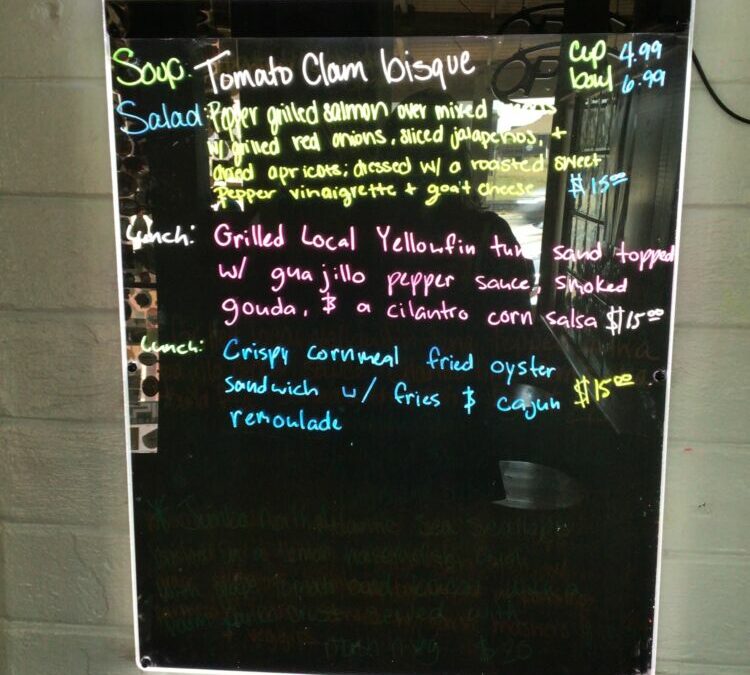 Soup: Tomato Clam bisque cup 4.99
bowl 6.99
Salad: Pepper grilled salmon over mixed greens
w/ grilled red onions, sliced jalapeños, +
dried apricots; dressed w/ a roasted sweet
pepper vinaigrette + goat cheese $15.00
Lunch: Grilled Local Yellowfin tuna sand topped
w/ guajillo pepper sauce, smoked
gouda, & a cilantro corn salsa $15.00
Lunch: Crispy cornmeal fried oyster
sandwich w/ fries & cajun $15.00
remoulade
* Jumbo North Atlantic Sea Scallops
$20